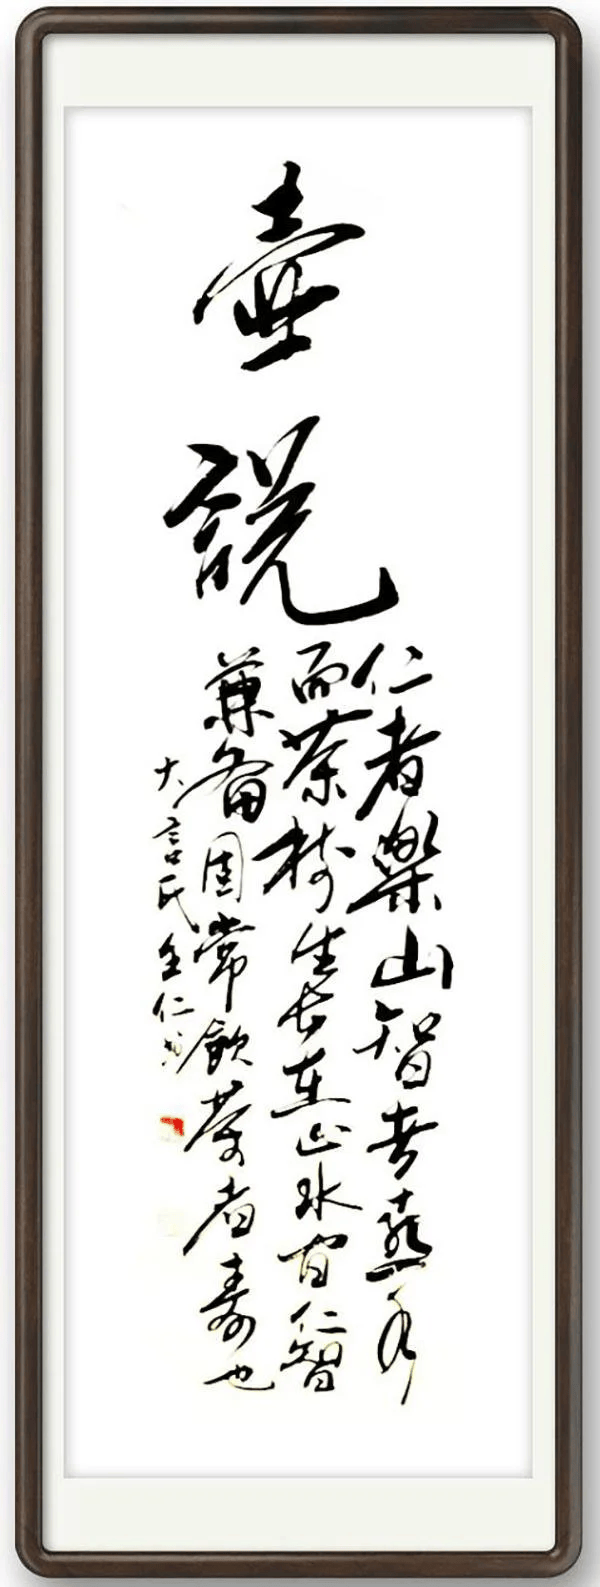 壺說
仁者樂山智者喜水
而茶樹生長在山水间仁智
兼备固常飲茶者寿也
大言氏全仁书